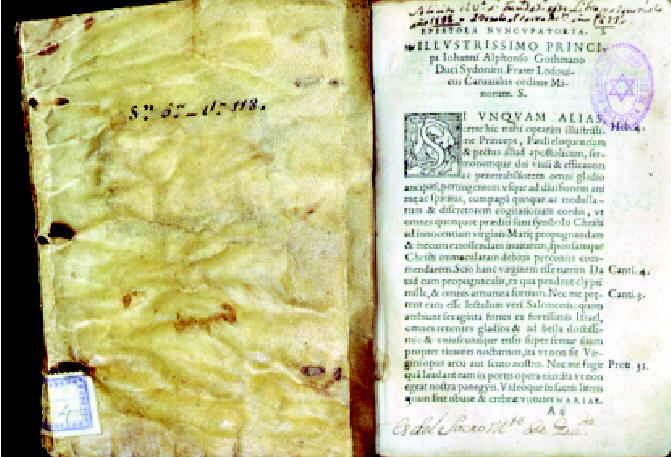 EPISTOLA NVNCVPATORIA.
ILLVSTRISSIMO PRINCI-
pi Iohanni Alphonso Gosthmano
Duci Sydoniæ, Frater Lodoui-
cus Caruaialus ordinis Mi-
norum. S.
SI VNQVAM ALIAS,
certe hic mihi optarim illustriss. Heb. 4.
me Princeps, Pauli eloquentiam
& pectus illud apostolicum, ser-
monemque dei viuū & efficacem
ac penetrabiliorem omni gladio
ancipiti, pertingentem vsque ad diuisionem ani
mę ac spiritus, compagū quoque ac medulla-
rum & discretorem cogitationum cordis, vt
omnes quotquot præditi sunt symbolo Christi
ad innocentiam virginis Marię propugnandam
& mecum extollendam inuitarem, sponsamque
Christi immaculatam debitis preconiis com-
mendarem. Scio hanc virginem esse turrim Da Canti. 4.
uid cum propugnaculis, ex qua pendent clypei
mille, & omnis armatura fortium. Nec me prę- Canti. 3.
terit eam esse lectulum veri Salomonis: quem
ambiunt sexaginta fortes ex fortissimis Israel,
omnes tenentes gladios & ad bella doctissi-
mi: & vniuscuiusque ensis super femur suum
propter timores nocturnos, ita vt non sit Vir-
gini opus arcu aut scuto nostro. Nec me fugit Prou. 31.
quā laudant eam in portis opera eius ita vt non
egeat nostra panegyri. Videoque in sacris literis
quam sint obuiæ & crebræ virtutes MARIAE.
A ij
4